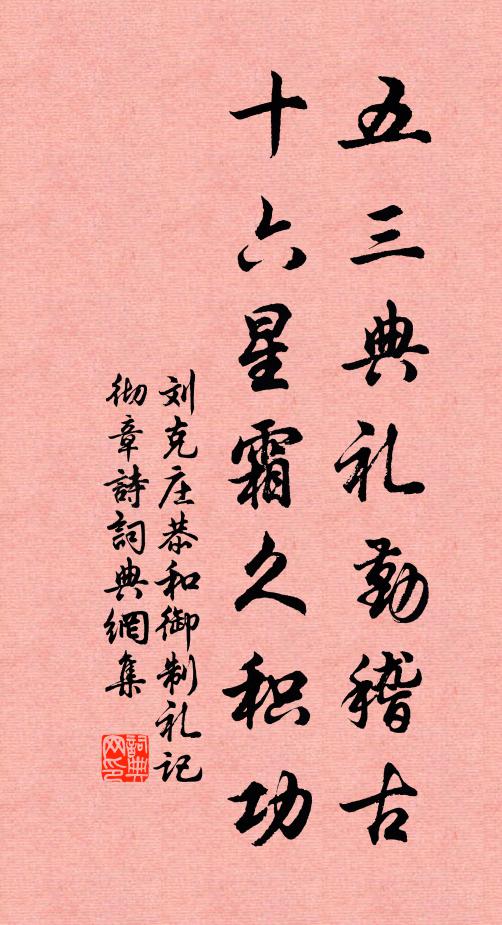 五三典礼勤稽古
十六星霜久积功
刘克庄恭和御制礼记
彻章詩詞典網集
詞典网印